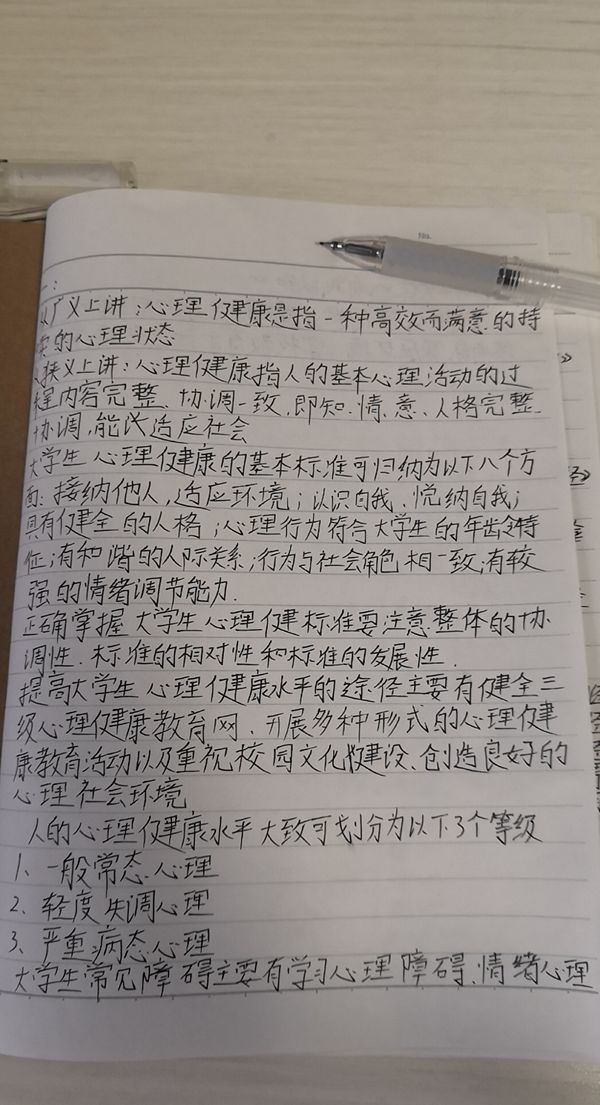 No.
从广义上讲：心理健康是指一种高效而满意的持
续的心理状态
从狭义上讲：心理健康指人的基本心理活动的过
程内容完整、协调一致，即知、情、意、人格完整
协调，能以适应社会
大学生心理健康的基本标准可归纳为以下八个方
面：接纳他人，适应环境；认识自我、悦纳自我；
具有健全的人格；心理行为符合大学生的年龄特
征；有和谐的人际关系；行为与社会角色相一致；有较
强的情绪调节能力.
正确掌握大学生心理健标准要注意整体的协
调性、标准的相对性和标准的发展性.
提高大学生心理健康水平的途径主要有健全三
级心理健康教育网、开展多种形式的心理健
康教育活动以及重视校园文化建设、创造良好的
心理社会环境
人的心理健康水平大致可划分为以下3个等级
1、一般常态心理
2、轻度失调心理
3、严重病态心理
大学生常见障碍主要有学习心理障碍、情绪心理